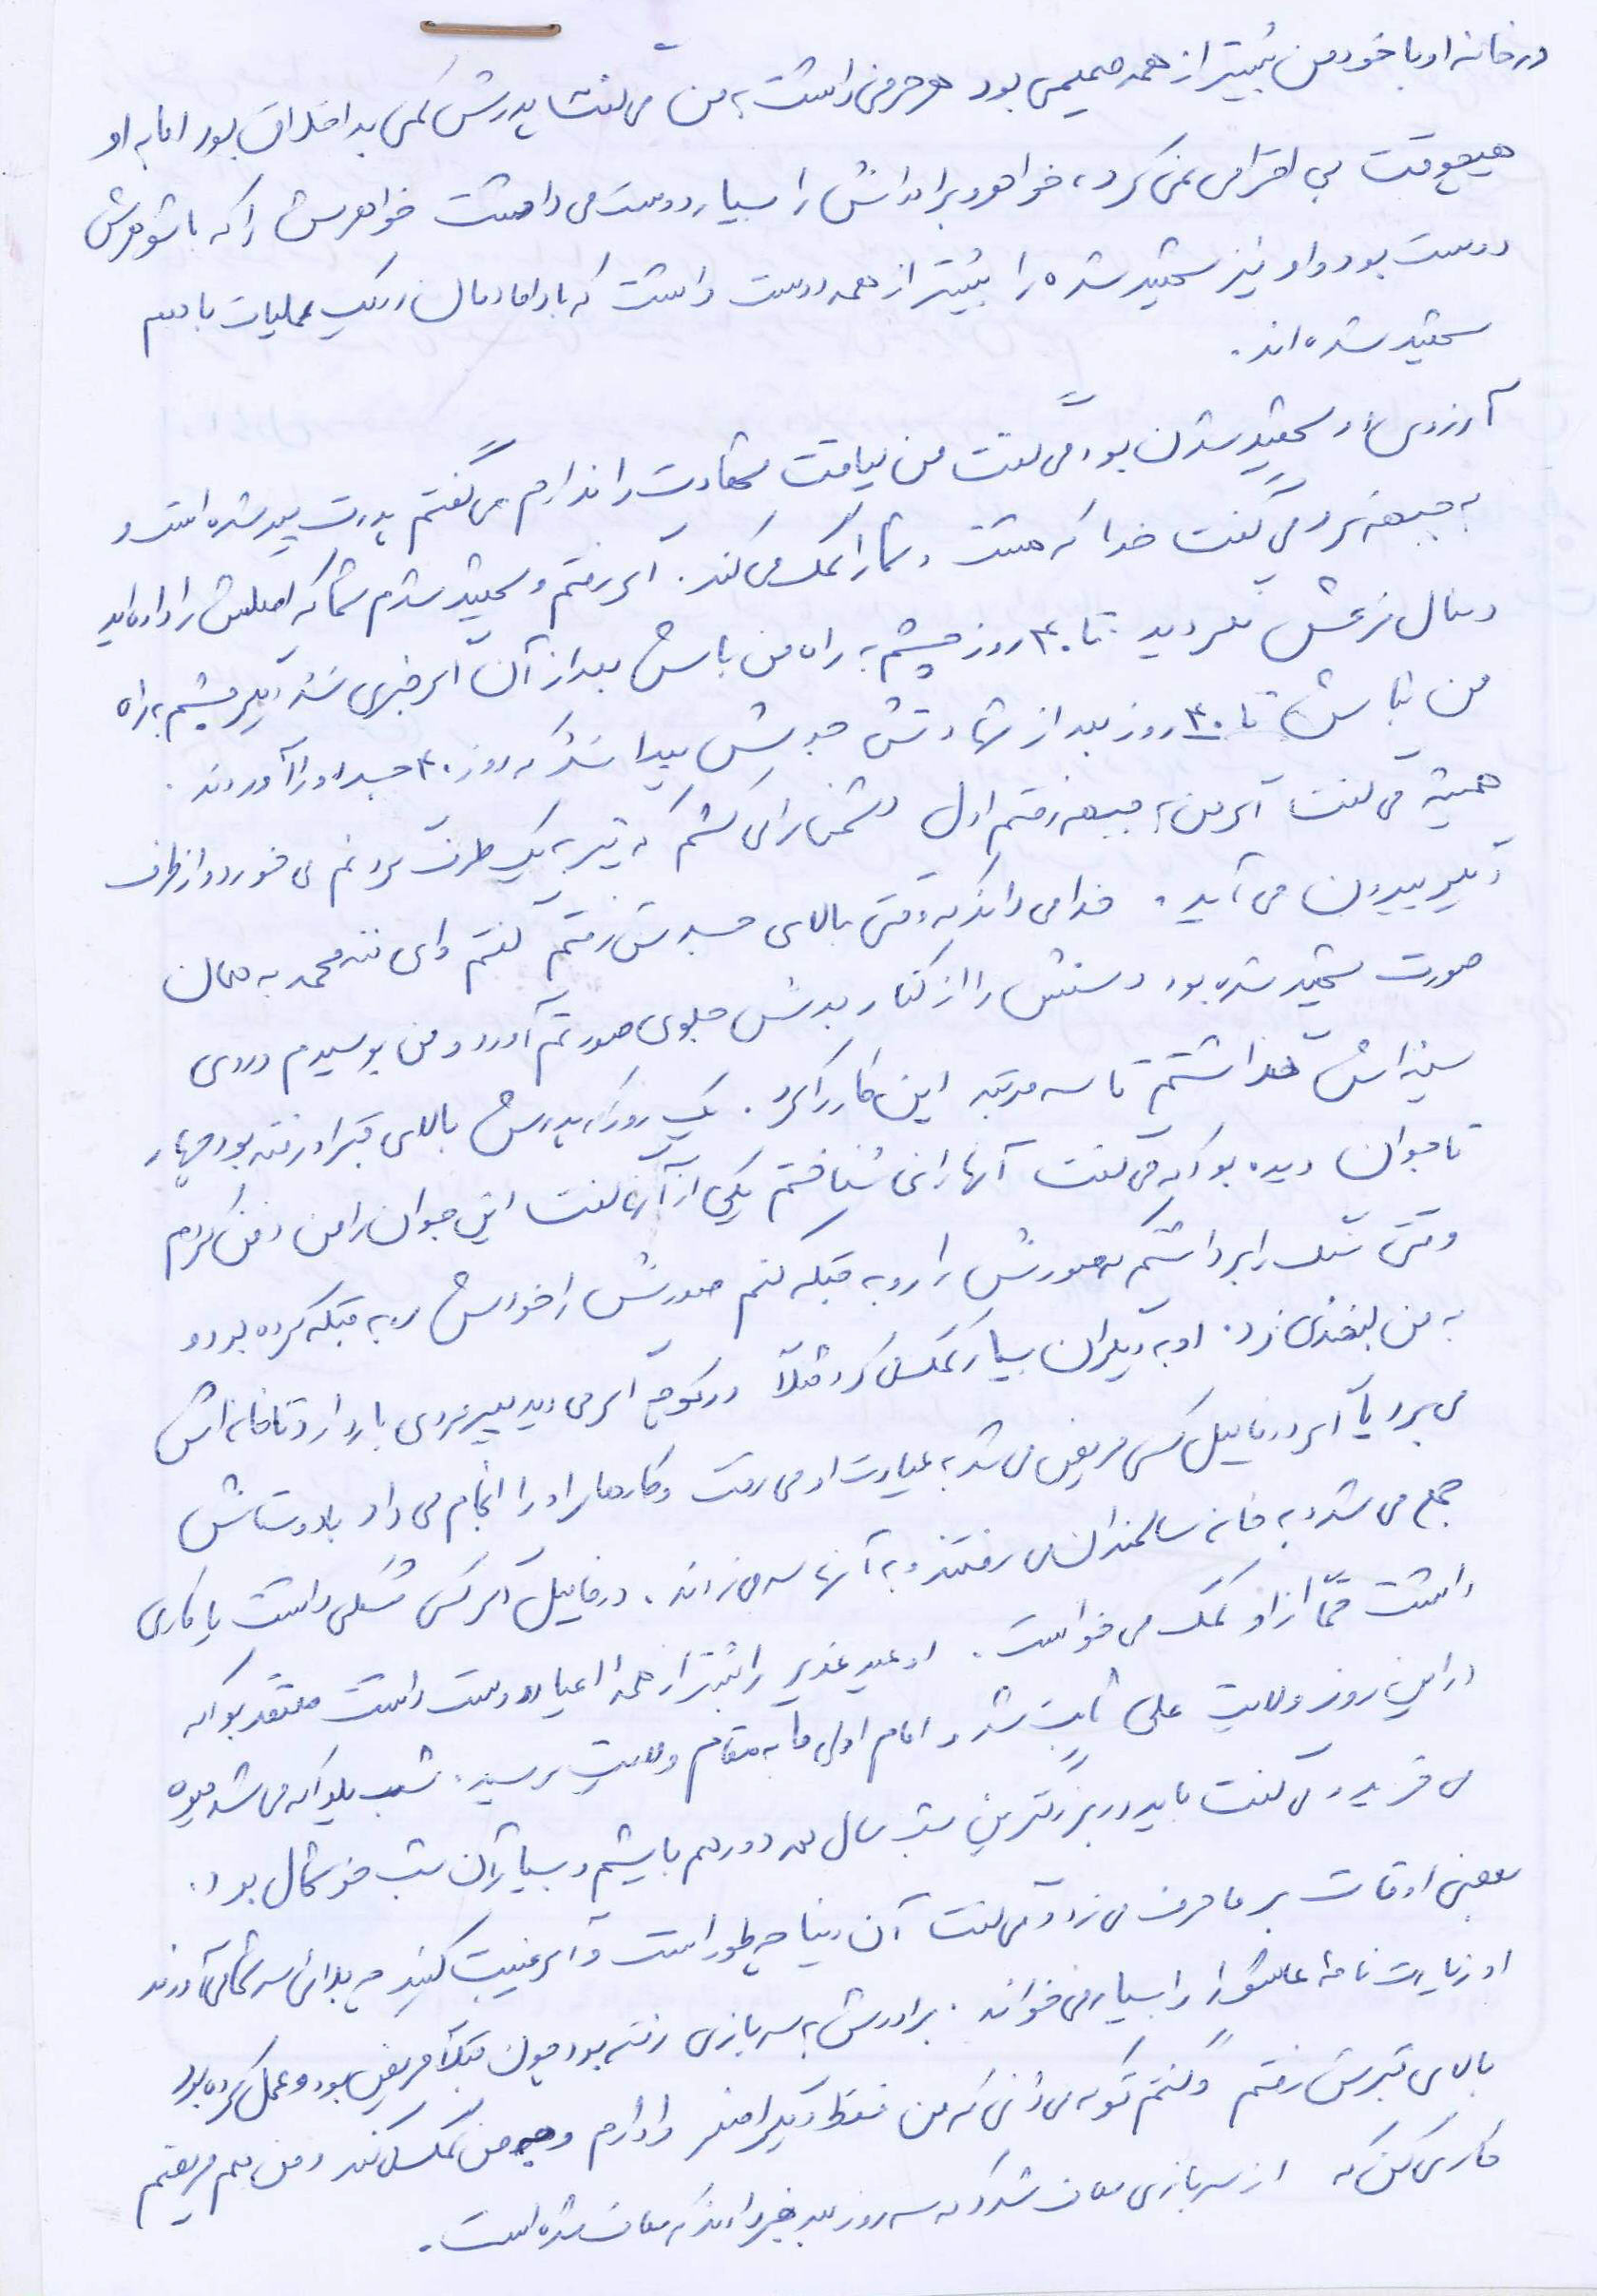 در خانه او با خود من بیشتر از همه صمیمی بود هر حرفی داشت به من می گفت پدرش کمی بد اخلاق بود اما به او
هیچوقت بی احترامی نمی کرد، خواهر و برادرانش را بسیار دوست می داشت خواهرش را که با شوهرش
دوست بود و او نیز شهید شده را بیشتر از همه دوست داشت که با دامادمان در یک عملیات با هم
شهید شده اند.
آرزوی او شهید شدن بود می گفت من لیاقت شهادت را ندارم می گفتم پدرت پیر شده است و
به جبهه نرو می گفت خدا که هست و شما را کمک می کند. اگر رفتم و شهید شدم شما که اصلش را داده اید
دنبال فرعش نگردید تا ۴۰ روز چشم به راه من باش بعد از آن اگر خبری نشد دیگر چشم به راه
من نباش تا ۴۰ روز بعد از شهادتش جسدش پیدا نشد که روز ۴۰ جسد او را آوردند.
همیشه می گفت اگر من به جبهه رفتم اول دشمن را می کشم که تیر به یک طرف گردنم می خورد و از طرف
دیگر بیرون می آید. خدا می داند که وقتی بالای جسدش رفتم گفتم وای ننه محمد به همان
صورت شهید شده بود دستش را از کنار بدنش جلوی صورتم آورد و من بوسیدم و روی
سینه اش گذاشتم تا سه مرتبه این کار را کرد. یک روز که پدرش بالای قبر او رفته بود چهار
تا جوان دیده بود که می گفت آنها را نمی شناختم یکی از آنها گفت این جوان را من دفن کردم
وقتی سنگ را برداشتم که صورتش را رو به قبله کنم صورتش را خودش رو به قبله کرده بود و
به من لبخندی زد. او به دیگران بسیار کمک می کرد مثلاً در کوچه اگر می دید پیرمردی بار دارد تا خانه اش
می برد یا اگر در فامیل کسی مریض می شد به عیادت او می رفت و کارهای او را انجام می داد با دوستانش
جمع می شد و به خانه سالمندان می رفتند و به آنها سر می زدند. در فامیل اگر کسی مشکلی داشت یا کاری
داشت حتماً از او کمک می خواست. او عید غدیر را بیشتر از همه اعیاد دوست داشت معتقد بود که
در این روز ولایت علی ثابت شد و امام اول ما به مقام ولایت رسید. شب یلدا که می شد میوه
می خرید و می گفت باید در بزرگترین شب سال همه دور هم باشیم و بسیار آن شب خوشحال بود.
بعضی اوقات بر ما حرف می زد و می گفت آن دنیا چه طور است و اگر غیبت کنید چه بلائی سر شما می آورند
او زیارت نامه عاشورا را بسیار می خواند. برادرش به سربازی رفته بود چون قبلاً مریض بود و عمل کرده بود
بالای قبرش رفتم و گفتم تو که می دانی که من فقط دیگر اصغر را دارم و به من کمک می کند و من هم مریضم
کاری کن که از سربازی معاف شود که سه روز بعد خبر دادند که معاف شده است.